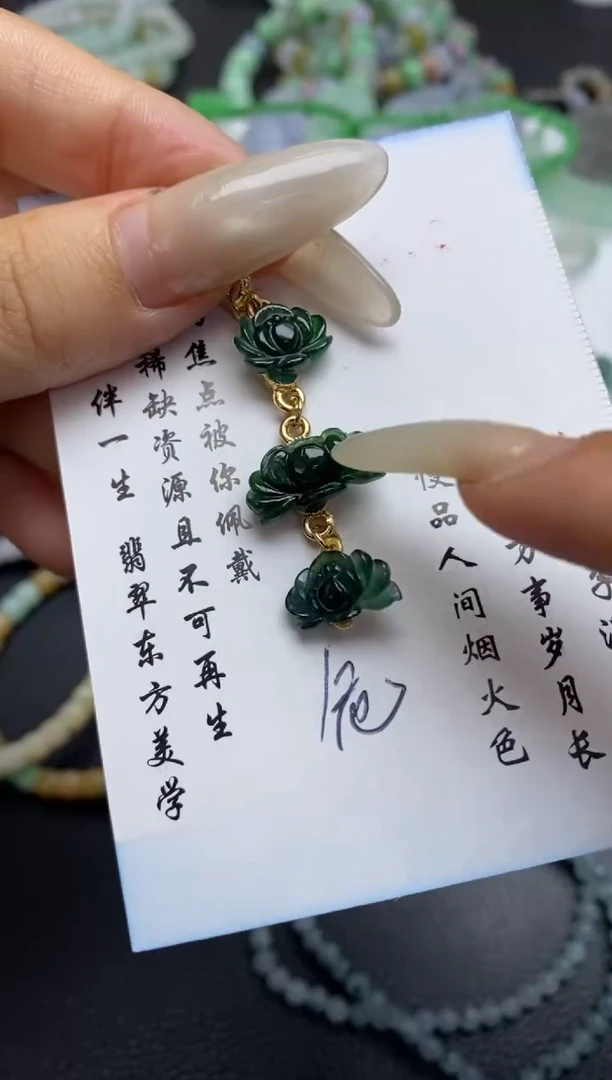 万事岁月长
慢品人间烟火色
焦点被你佩戴
稀缺资源且不可再生
伴一生 翡翠东方美学